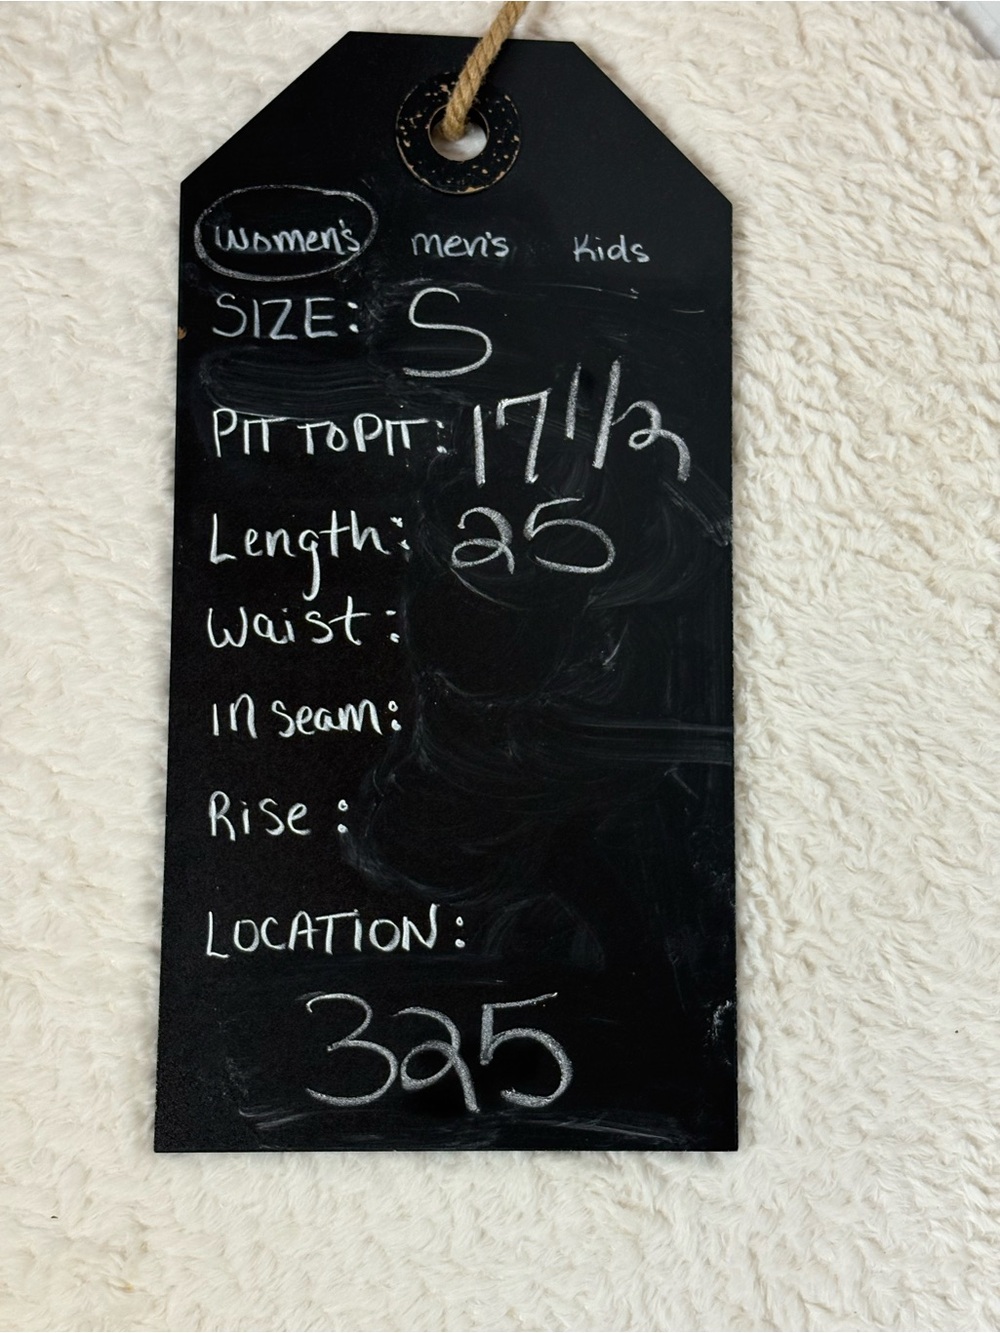 Women's men's Kids
SIZE: S
PIT TO PIT: 17 1/2
Length: 25
Waist:
in seam:
Rise:
LOCATION:
325